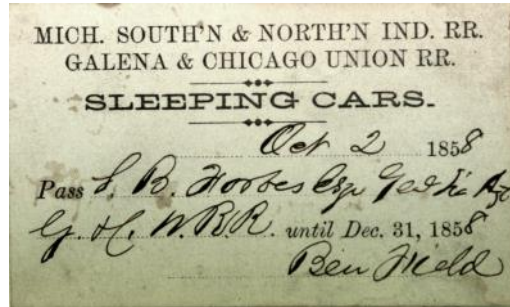 MICH. SOUTH'N & NORTH'N IND. RR.
GALENA & CHICAGO UNION RR.
SLEEPING CARS.
Oct 2 1858
Pass S. B. Forbes Esq Gen Tk Agt
G. & C. U. R.R. until Dec. 31, 1858
Ben Field